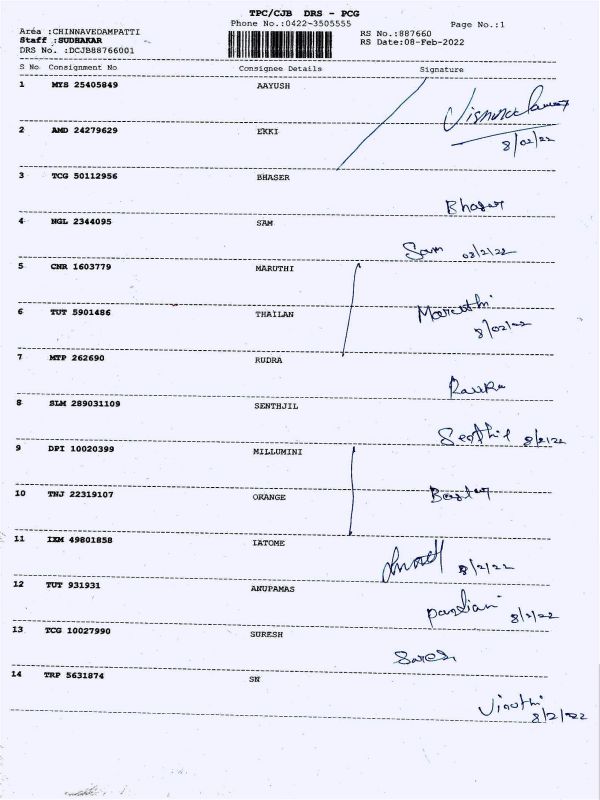 TPC/CJB DRS - PCG
Phone No.:0422-3505555 Page No.:1
Aréa :CHINNAVEDAMPATTI
Staff :SUDHAKAR RS No.:887660
DRS No. :DCJB88766001 RS Date:08-Feb-2022
S No Consignment No Consignee Details Signature
1 MYS 25405849 AAYUSH
8/02/22
2 AMD 24279629 EKKI
3 TCG 50112956 BHASER
Bhaser
4 NGL 2344095 SAM
Sam 08/2/22
5 CNR 1603779 MARUTHI
Maruthi
8/02/22
6 TUT 5901486 THAILAN
7 MTP 262690 RUDRA
8 SLM 289031109 SENTHJIL
Senthil 8/2/22
9 DPI 10020399 MILLUMINI
10 TNJ 22319107 ORANGE
11 IXM 49801858 IATOME
8/2/22
12 TUT 931931 ANUPAMAS
pandian 8/2/22
13 TCG 10027990 SURESH
Suresh
14 TRP 5631874 SN
Vinothi
8/2/22